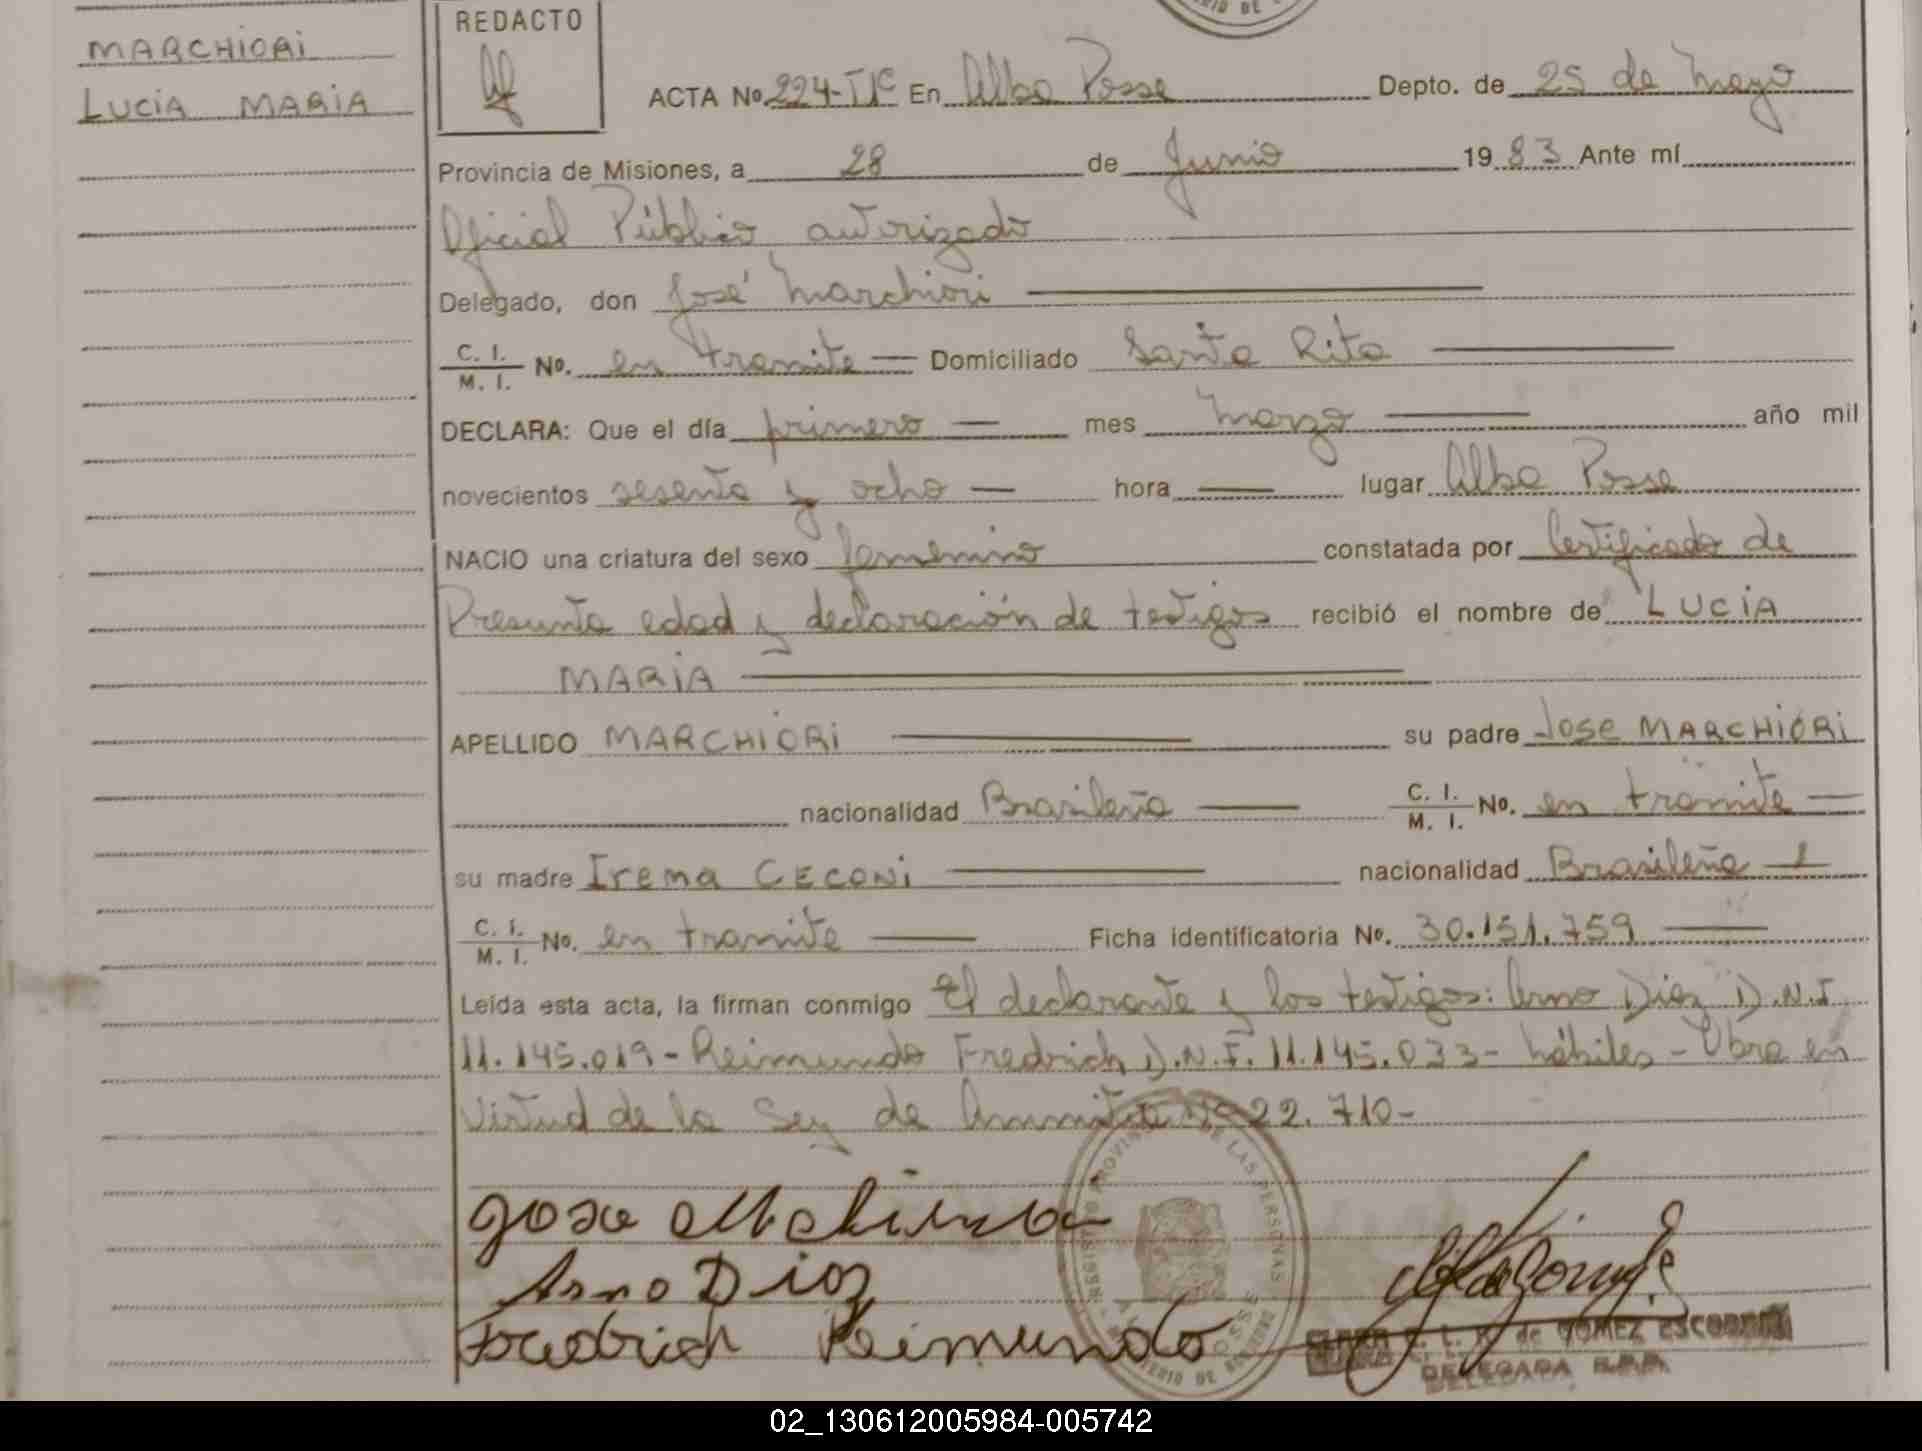 MARCHIORI
LUCIA MARIA
REDACTO
ACTA No. 224-T1c En Alba Posse Depto. de 25 de Mayo
Provincia de Misiones, a 28 de Junio 1983 Ante mí
Oficial Público autorizado
Delegado, don José Marchiori
C. I. / M. I. No. en tramite Domiciliado Santa Rita
DECLARA: Que el día primero mes Marzo año mil
novecientos sesenta y ocho hora — lugar Alba Posse
NACIO una criatura del sexo femenino constatada por Certificado de
Presunta edad y declaración de testigos recibió el nombre de LUCIA
MARIA
APELLIDO MARCHIORI su padre JOSE MARCHIORI
nacionalidad Brasileña C. I. / M. I. No. en tramite
su madre Irema CECONI nacionalidad Brasileña
C. I. / M. I. No. en tramite Ficha identificatoria No. 30.151.759
Leída esta acta, la firman conmigo El declarante y los testigos: Arno Diez D.N.I
11.145.019 - Reimundo Fredrich D.N.I. 11.145.033 - hábiles - Obra en
Virtud de la Ley de Amnistia Nº 22.710-
Jose
Arno Diez
Friedrich Reimundo
de GOMEZ ESCOBAR
DELEGADA
02_130612005984-005742